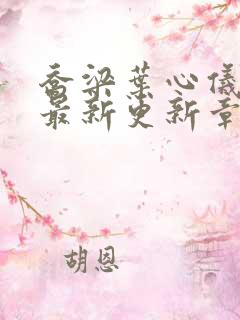 乔梁葉心儀
最新更新章
胡恩